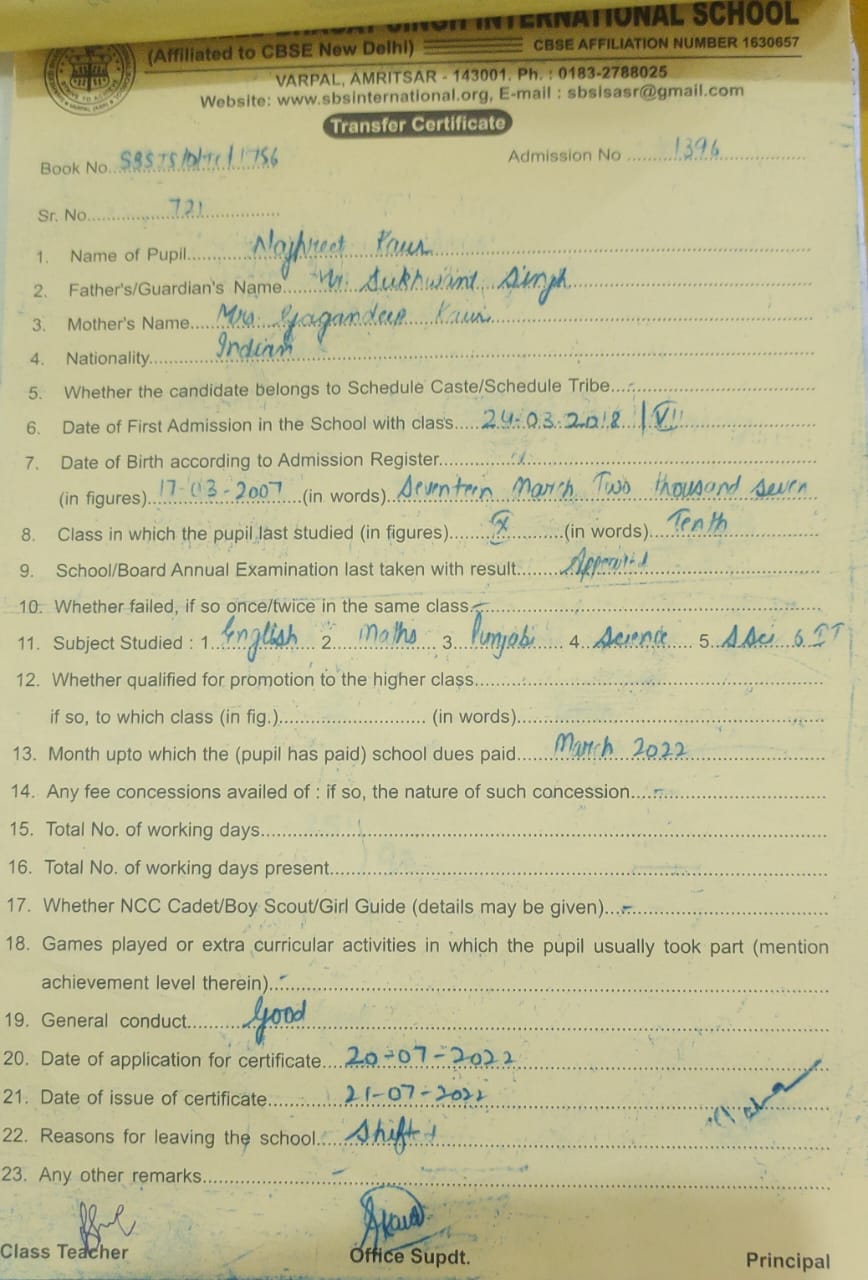 BHAGAT SINGH INTERNATIONAL SCHOOL
(Affiliated to CBSE New Delhi) CBSE AFFILIATION NUMBER 1630657
VARPAL, AMRITSAR - 143001. Ph. : 0183-2788025
Website: www.sbsinternational.org, E-mail : sbsisasr@gmail.com
Transfer Certificate
Book No. Admission No 1396
Sr. No. 721
1. Name of Pupil Navpreet Kaur
2. Father's/Guardian's Name Mr. Sukhwant Singh
3. Mother's Name Mrs Gagandeep Kaur
4. Nationality Indian
5. Whether the candidate belongs to Schedule Caste/Schedule Tribe -
6. Date of First Admission in the School with class 24-03-2018 | VII
7. Date of Birth according to Admission Register
(in figures) 17-03-2007 (in words) Seventeen March Two thousand seven
8. Class in which the pupil last studied (in figures) X (in words) Tenth
9. School/Board Annual Examination last taken with result Appeared
10. Whether failed, if so once/twice in the same class -
11. Subject Studied : 1. English 2. Maths 3. Punjabi 4. Science 5. S Sci 6 IT
12. Whether qualified for promotion to the higher class
if so, to which class (in fig.) (in words)
13. Month upto which the (pupil has paid) school dues paid March 2022
14. Any fee concessions availed of : if so, the nature of such concession -
15. Total No. of working days
16. Total No. of working days present
17. Whether NCC Cadet/Boy Scout/Girl Guide (details may be given) -
18. Games played or extra curricular activities in which the pupil usually took part (mention
achievement level therein) -
19. General conduct Good
20. Date of application for certificate 20-07-2022
21. Date of issue of certificate 21-07-2022
22. Reasons for leaving the school Shift
23. Any other remarks -
Class Teacher Office Supdt. Principal